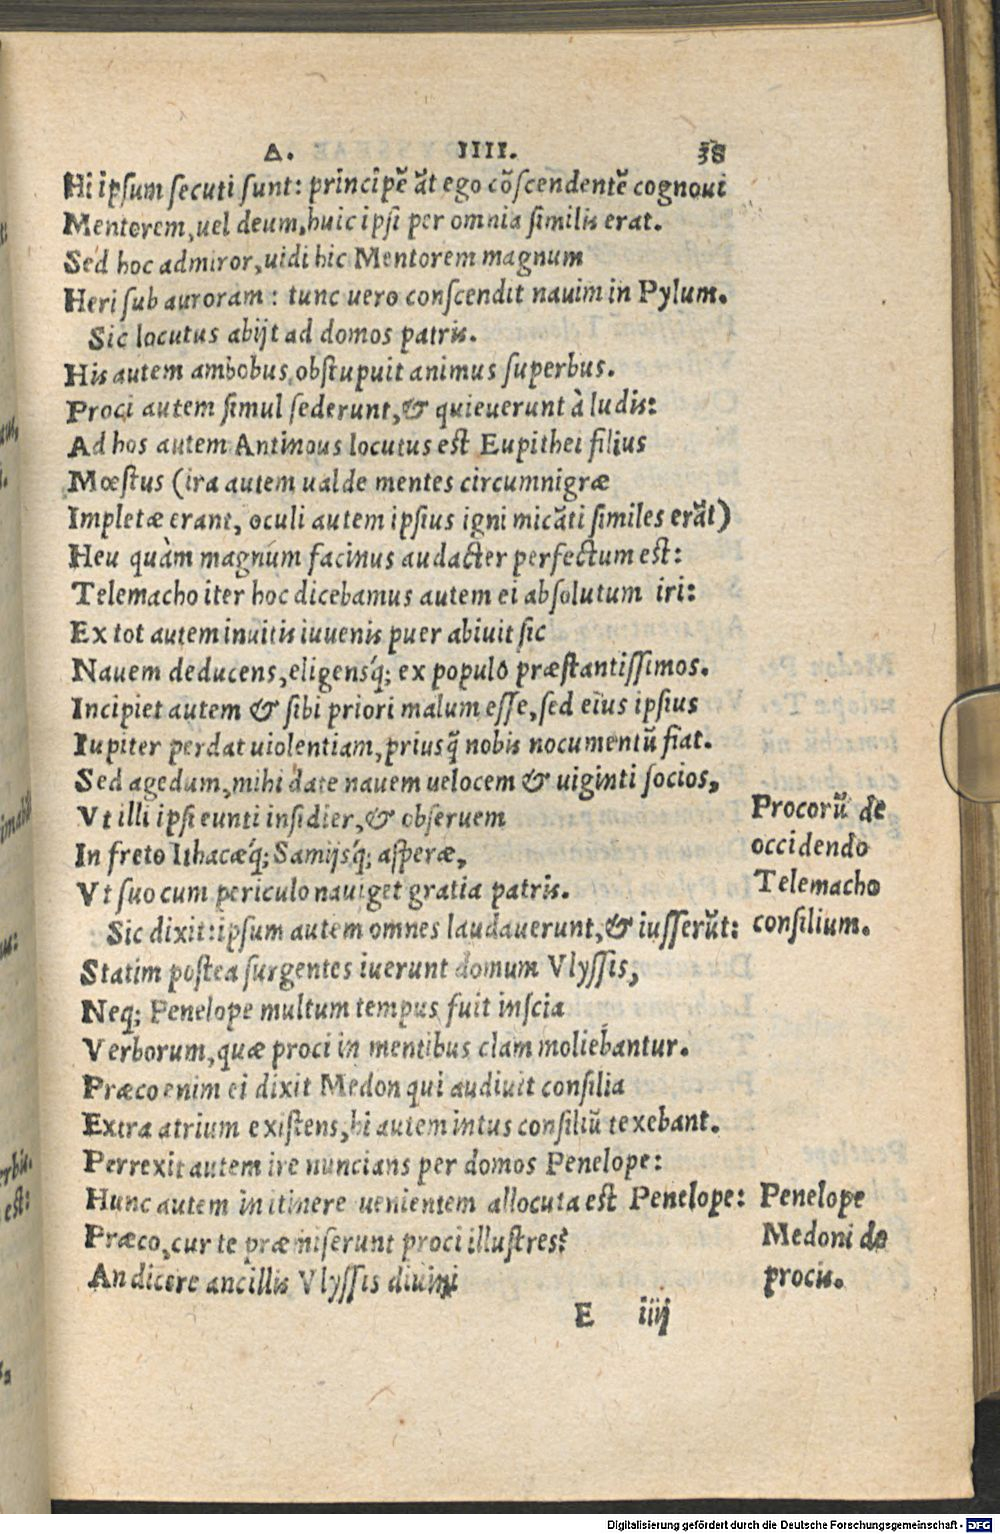 Δ. IIII. 38
Hi ipsum secuti sunt: principẽ ãt ego cõscendentẽ cognoui
Mentorem, uel deum, huic ipsi per omnia similis erat.
Sed hoc admiror, uidi hic Mentorem magnum
Heri sub auroram: tunc uero conscendit nauim in Pylum.
Sic locutus abijt ad domos patris.
His autem ambobus obstupuit animus superbus.
Proci autem simul sederunt, & quieuerunt à ludis:
Ad hos autem Antinous locutus est Eupithei filius
Mœstus (ira autem ualde mentes circumnigræ
Impletæ erant, oculi autem ipsius igni micãti similes erãt)
Heu quàm magnum facinus audacter perfectum est:
Telemacho iter hoc dicebamus autem ei absolutum iri:
Ex tot autem inuitis iuuenis puer abiuit sic
Nauem deducens, eligensq́; ex populo præstantissimos.
Incipiet autem & sibi priori malum esse, sed eius ipsius
Iupiter perdat uiolentiam, priusq̃ nobis nocumentũ fiat.
Sed agedum, mihi date nauem uelocem & uiginti socios,
Vt illi ipsi eunti insidier, & obseruem
In freto Ithacæq́; Samijsq́; asperæ,
Vt suo cum periculo nauiget gratia patris.
Procorũ de
occidendo
Telemacho
consilium.
Sic dixit: ipsum autem omnes laudauerunt, & iusserũt:
Statim postea surgentes iuerunt domum Vlyssis,
Neq; Penelope multum tempus fuit inscia
Verborum, quæ proci in mentibus clam moliebantur.
Præco enim ei dixit Medon qui audiuit consilia
Extra atrium existens, hi autem intus consiliũ texebant.
Perrexit autem ire nuncians per domos Penelope:
Hunc autem in itinere uenientem allocuta est Penelope:
Præco, cur te præmiserunt proci illustres?
An dicere ancillis Vlyssis diuini
Penelope
Medoni de
procis.
E iiij
Digitalisierung gefördert durch die Deutsche Forschungsgemeinschaft - DFG